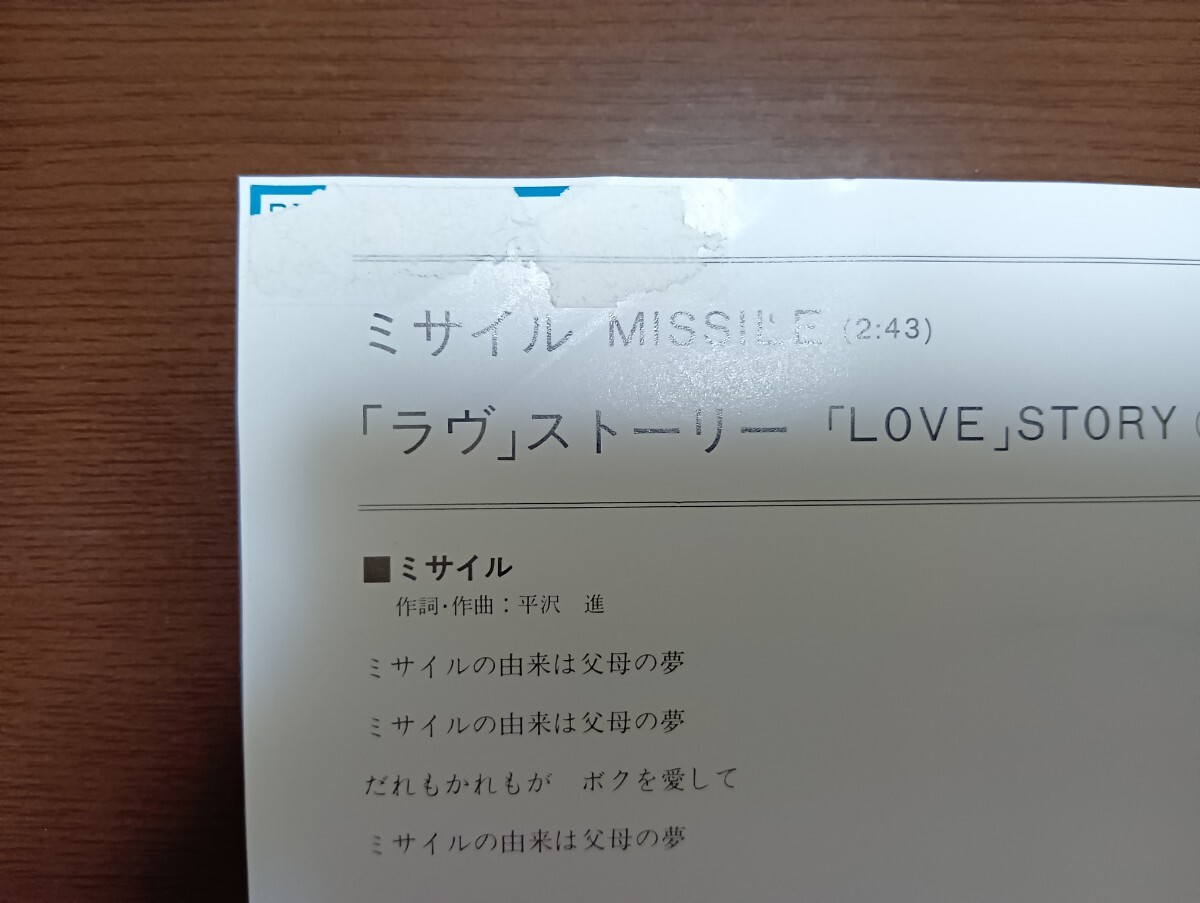 ミサイル MISSILE (2:43)
「ラヴ」ストーリー 「LOVE」STORY
■ミサイル
作詞・作曲：平沢　進
ミサイルの由来は父母の夢
ミサイルの由来は父母の夢
だれもかれもが　ボクを愛して
ミサイルの由来は父母の夢